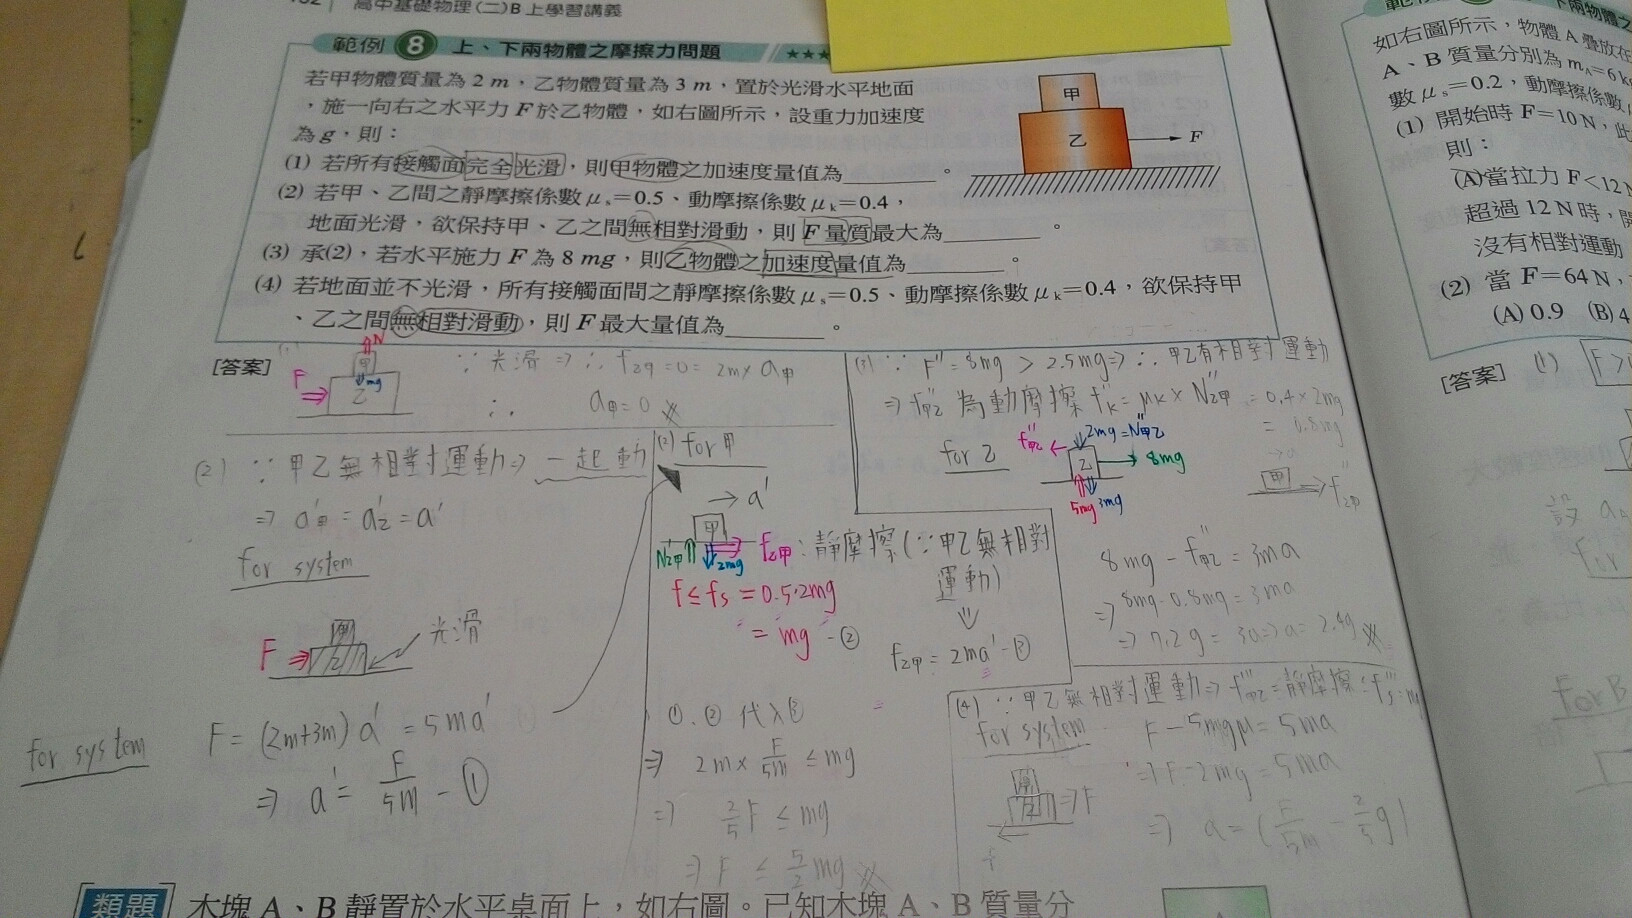 高中基礎物理(二)B上學習講義
範例 8 上、下兩物體之摩擦力問題 ★★★
若甲物體質量為 2 m，乙物體質量為 3 m，置於光滑水平地面
，施一向右之水平力 F 於乙物體，如右圖所示，設重力加速度
為 g，則：
(1) 若所有接觸面完全光滑，則甲物體之加速度量值為________。
(2) 若甲、乙間之靜摩擦係數 μs＝0.5、動摩擦係數 μk＝0.4，
地面光滑，欲保持甲、乙之間無相對滑動，則 F 量質最大為________。
(3) 承(2)，若水平施力 F 為 8 mg，則乙物體之加速度量值為________。
(4) 若地面並不光滑，所有接觸面間之靜摩擦係數 μs＝0.5、動摩擦係數 μk＝0.4，欲保持甲
、乙之間無相對滑動，則 F 最大量值為________。
甲
乙
F
[答案]
F
N
甲
mg
乙
∵ 光滑 ⇒ ∴ f乙甲=0=2m×a甲
∴ a甲=0
(2) ∵ 甲乙無相對運動 ⇒ 一起動
⇒ a'甲 = a'乙 = a'
for system
F
甲
乙
光滑
for system
F = (2m+3m) a' = 5ma'
⇒ a' = F/5m - ①
(2) for 甲
→ a'
甲
N乙甲
2mg
f乙甲：靜摩擦 (∵甲乙無相對
運動)
f ≤ fs = 0.5·2mg
= mg - ②
f乙甲 = 2ma' - ③
①.② 代入③
⇒ 2m × F/5m ≤ mg
⇒ 2/5 F ≤ mg
⇒ F ≤ 5/2 mg
(3) ∵ F" = 8mg > 2.5mg ⇒ ∴ 甲乙有相對運動
⇒ f"甲乙 為動摩擦 f"k = μk × N"乙甲 = 0.4×2mg
= 0.8mg
for 乙
f"甲乙
2mg = N"甲乙
乙
8mg
5mg
3mg
→ a
甲
f"乙甲
8mg - f"甲乙 = 3ma
⇒ 8mg - 0.8mg = 3ma
⇒ 7.2g = 3a ⇒ a = 2.4g
(4) ∵ 甲乙無相對運動 ⇒ f'''甲乙 = 靜摩擦
for system
F - 5mgμ = 5ma
⇒ F - 2mg = 5ma
甲
乙
⇒ F
⇒ a = (F/5m - 2/5 g)
類題
木塊 A、B 靜置於水平桌面上，如右圖。已知木塊 A、B 質量分
如右圖所示，物體 A 疊放在
A、B 質量分別為 mA＝6 k
數 μs＝0.2，動摩擦係數
(1) 開始時 F＝10 N，此
則：
(A)當拉力 F＜12 N
超過 12 N 時，開
沒有相對運動
(2) 當 F＝64 N，
(A) 0.9 (B) 4
[答案]
(1)
設
for
for B